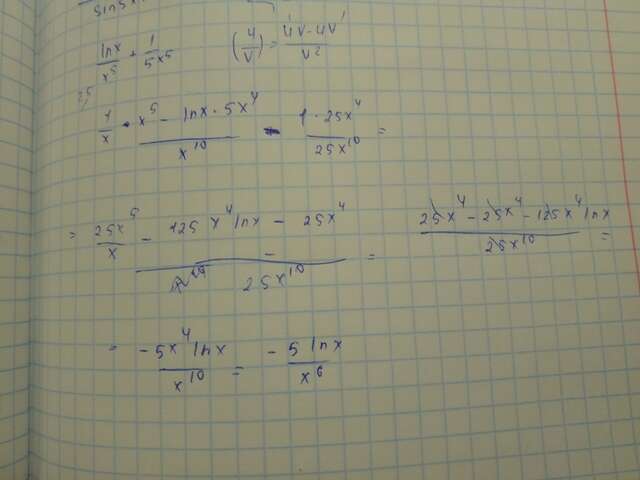 \frac{\ln x}{x^5} + \frac{1}{5x^5} \quad \left(\frac{u}{v}\right) = \frac{u'v - uv'}{v^2}
\frac{\frac{1}{x} \cdot x^5 - \ln x \cdot 5x^4}{x^{10}} - \frac{1 \cdot 25x^4}{25x^{10}} =
= \frac{\frac{25x^5}{x} - 125x^4 \ln x - 25x^4}{25x^{10}} = \frac{25x^4 - 25x^4 - 125x^4 \ln x}{25x^{10}} =
= \frac{-5x^4 \ln x}{x^{10}} = \frac{-5 \ln x}{x^6}